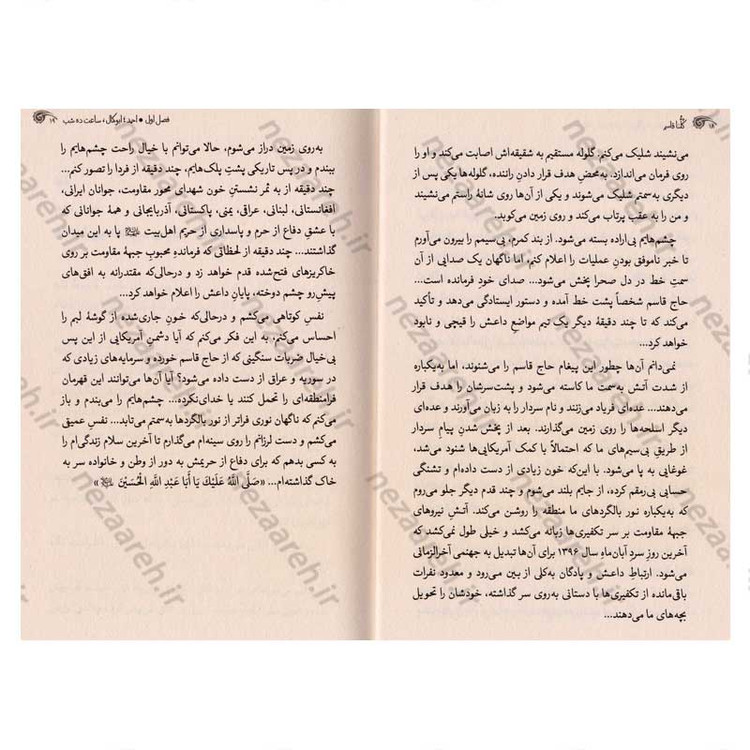 ۱۸ کلنا قاسم
می‌نشیند شلیک می‌کنم. گلوله مستقیم به شقیقه‌اش اصابت می‌کند و او را
روی فرمان می‌اندازد. به‌محض هدف قرار دادن راننده، گلوله‌ها یکی پس از
دیگری به‌سمتم شلیک می‌شوند و یکی از آن‌ها روی شانهٔ راستم می‌نشیند
و من را به عقب پرتاب می‌کند و روی زمین می‌کوبد.
چشم‌هایم بی‌اراده بسته می‌شود. از بند کمرم، بی‌سیمم را بیرون می‌آورم
تا خبر ناموفق بودن عملیات را اعلام کنم، اما ناگهان یک صدایی از آن
سمتِ خط در دل صحرا پخش می‌شود... صدای خودِ فرمانده است...
حاج قاسم شخصاً پشت خط آمده و دستور ایستادگی می‌دهد و تأکید
می‌کند که تا چند دقیقهٔ دیگر یک تیم مواضع داعش را قیچی و نابود
خواهد کرد...
نمی‌دانم آن‌ها چطور این پیغام حاج قاسم را می‌شنوند، اما به‌یکباره
از شدت آتش به‌سمت ما کاسته می‌شود و پشت‌سرشان را هدف قرار
می‌دهند... عده‌ای فریاد می‌زنند و نام سردار را به زبان می‌آورند و عده‌ای
دیگر اسلحه‌ها را روی زمین می‌گذارند. بعد از پخش شدنِ پیام سردار
از طریقِ بی‌سیم‌های ما که احتمالاً با کمک آمریکایی‌ها شنود می‌شد،
غوغایی به پا می‌شود. با این‌که خون زیادی از دست داده‌ام و تشنگی
حسابی بی‌رمقم کرده، از جایم بلند می‌شوم و چند قدم دیگر جلو می‌روم
که به‌یکباره نور بالگردهای ما منطقه را روشن می‌کند. آتشِ نیروهای
جبههٔ مقاومت بر سر تکفیری‌ها زبانه می‌کشد و خیلی طول نمی‌کشد که
آخرین روزِ سردِ آبان‌ماهِ سال ۱۳۹۶ برای آن‌ها تبدیل به جهنمی آخرالزمانی
می‌شود. ارتباطِ داعش و پادگان به‌کلی از بین می‌رود و معدود نفرات
باقی‌مانده از تکفیری‌ها با دستانی به‌روی سر گذاشته، خودشان را تحویل
بچه‌های ما می‌دهند...
فصل اول • احمد؛ ابوکمال، ساعت ده شب ۱۹
به‌روی زمین دراز می‌شوم، حالا می‌توانم با خیال راحت چشم‌هایم را
ببندم و در پس تاریکی پشتِ پلک‌هایم، چند دقیقه از فردا را تصور کنم...
چند دقیقه از به ثمر نشستنِ خون شهدای محور مقاومت، جوانان ایرانی،
افغانستانی، لبنانی، عراقی، یمنی، پاکستانی، آذربایجانی و همهٔ جوانانی که
با عشقِ دفاع از حرم و پاسداری از حریم اهل‌بیت پا به این میدان
گذاشتند... چند دقیقه از لحظاتی که فرماندهِ محبوبِ جبههٔ مقاومت بر روی
خاکریزهای فتح‌شده قدم خواهد زد و درحالی‌که مقتدرانه به افق‌های
پیش‌رو چشم دوخته، پایانِ داعش را اعلام خواهد کرد...
نفسِ کوتاهی می‌کشم و درحالی‌که خونِ جاری‌شده از گوشهٔ لبم را
احساس می‌کنم، به این فکر می‌کنم که آیا دشمنِ آمریکایی از این پس
بی‌خیال ضربات سنگینی که از حاج قاسم خورده و سرمایه‌های زیادی که
در سوریه و عراق از دست داده می‌شود؟ آیا آن‌ها می‌توانند این قهرمان
فرامنطقه‌ای را تحمل کنند یا خدای‌نکرده... چشم‌هایم را می‌بندم و باز
می‌کنم که ناگهان نوری فراتر از نور بالگردها به سمتم می‌تابد... نفس عمیقی
می‌کشم و دست لرزانم را روی سینه‌ام می‌گذارم تا آخرین سلام زندگی‌ام را
به کسی بدهم که برای دفاع از حریمش به دور از وطن و خانواده سر به
خاک گذاشته‌ام... «صَلَّی اللّٰهُ عَلَیْكَ یَا أَبَا عَبْدِ اللّٰهِ الْحُسَیْنَ»
nezaareh.ir